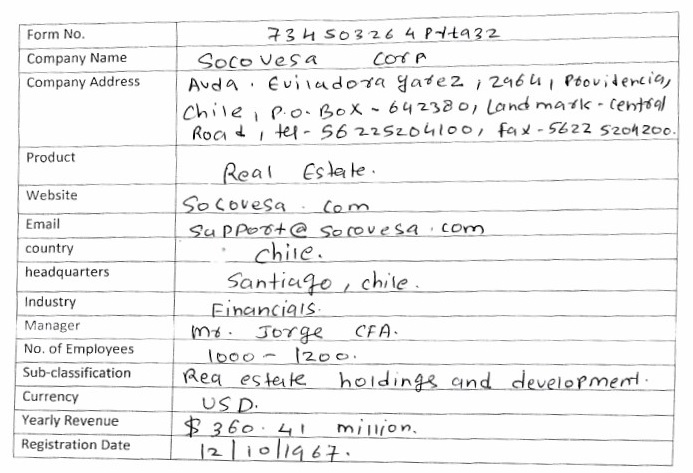 Form No. 734503264Pytq32
Company Name Socovesa Corp
Company Address Avda. Eviladora yarez, 2964, Providencia,
Chile, P.O. Box - 642380, Landmark - Central
Road, tel - 56 225204100, fax - 5622 5204200.
Product Real Estate.
Website Socovesa . com
Email Support@ socovesa . com
country chile.
headquarters Santiago, chile.
Industry Financials.
Manager Mr. Jorge CFA.
No. of Employees 1000 - 1200.
Sub-classification Rea estate holdings and development.
Currency USD.
Yearly Revenue $ 360.41 million.
Registration Date 12/10/1967.